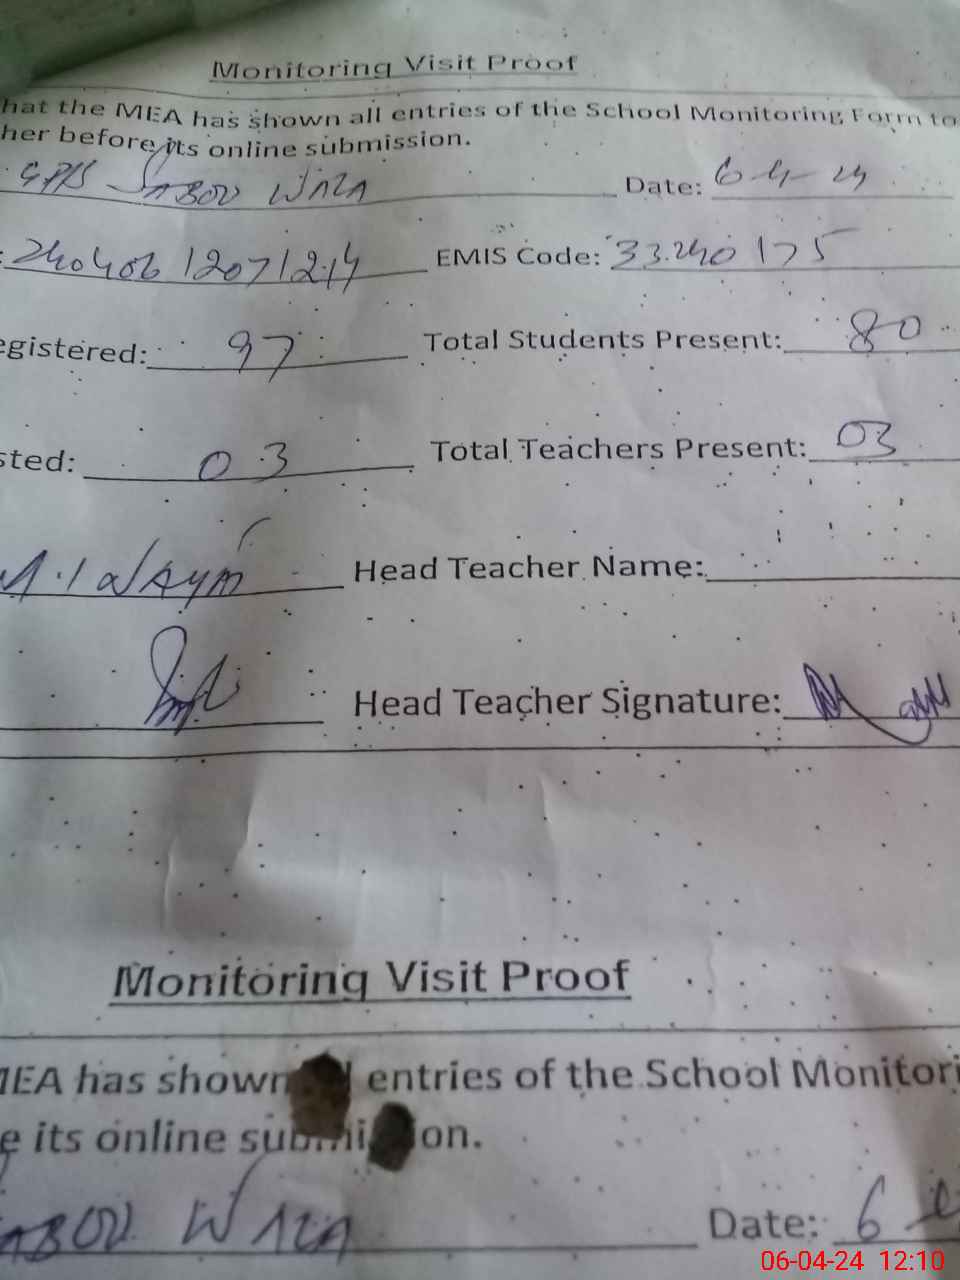 Monitoring Visit Proof
hat the MEA has shown all entries of the School Monitoring Form to
her before its online submission.
GPS SABOU WALA Date: 6-4-24
24040612071214 EMIS Code: 33240175
egistered: 97 Total Students Present: 80
sted: 03 Total Teachers Present: 03
Head Teacher Name:
Head Teacher Signature:
Monitoring Visit Proof
MEA has shown entries of the School Monitori
e its online submission.
ABOU WALA Date: 6
06-04-24 12:10